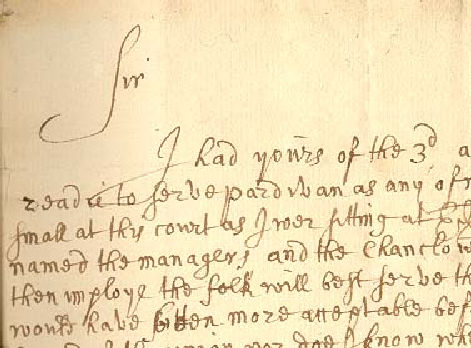 Sir
I had yours of the 3d a
readie to serve pardivan as any of
small at this court as I wer sitting at
named the managers, and the Chanclow
then imploye the folk will best serve th
would have been more acceptable bef
know wh